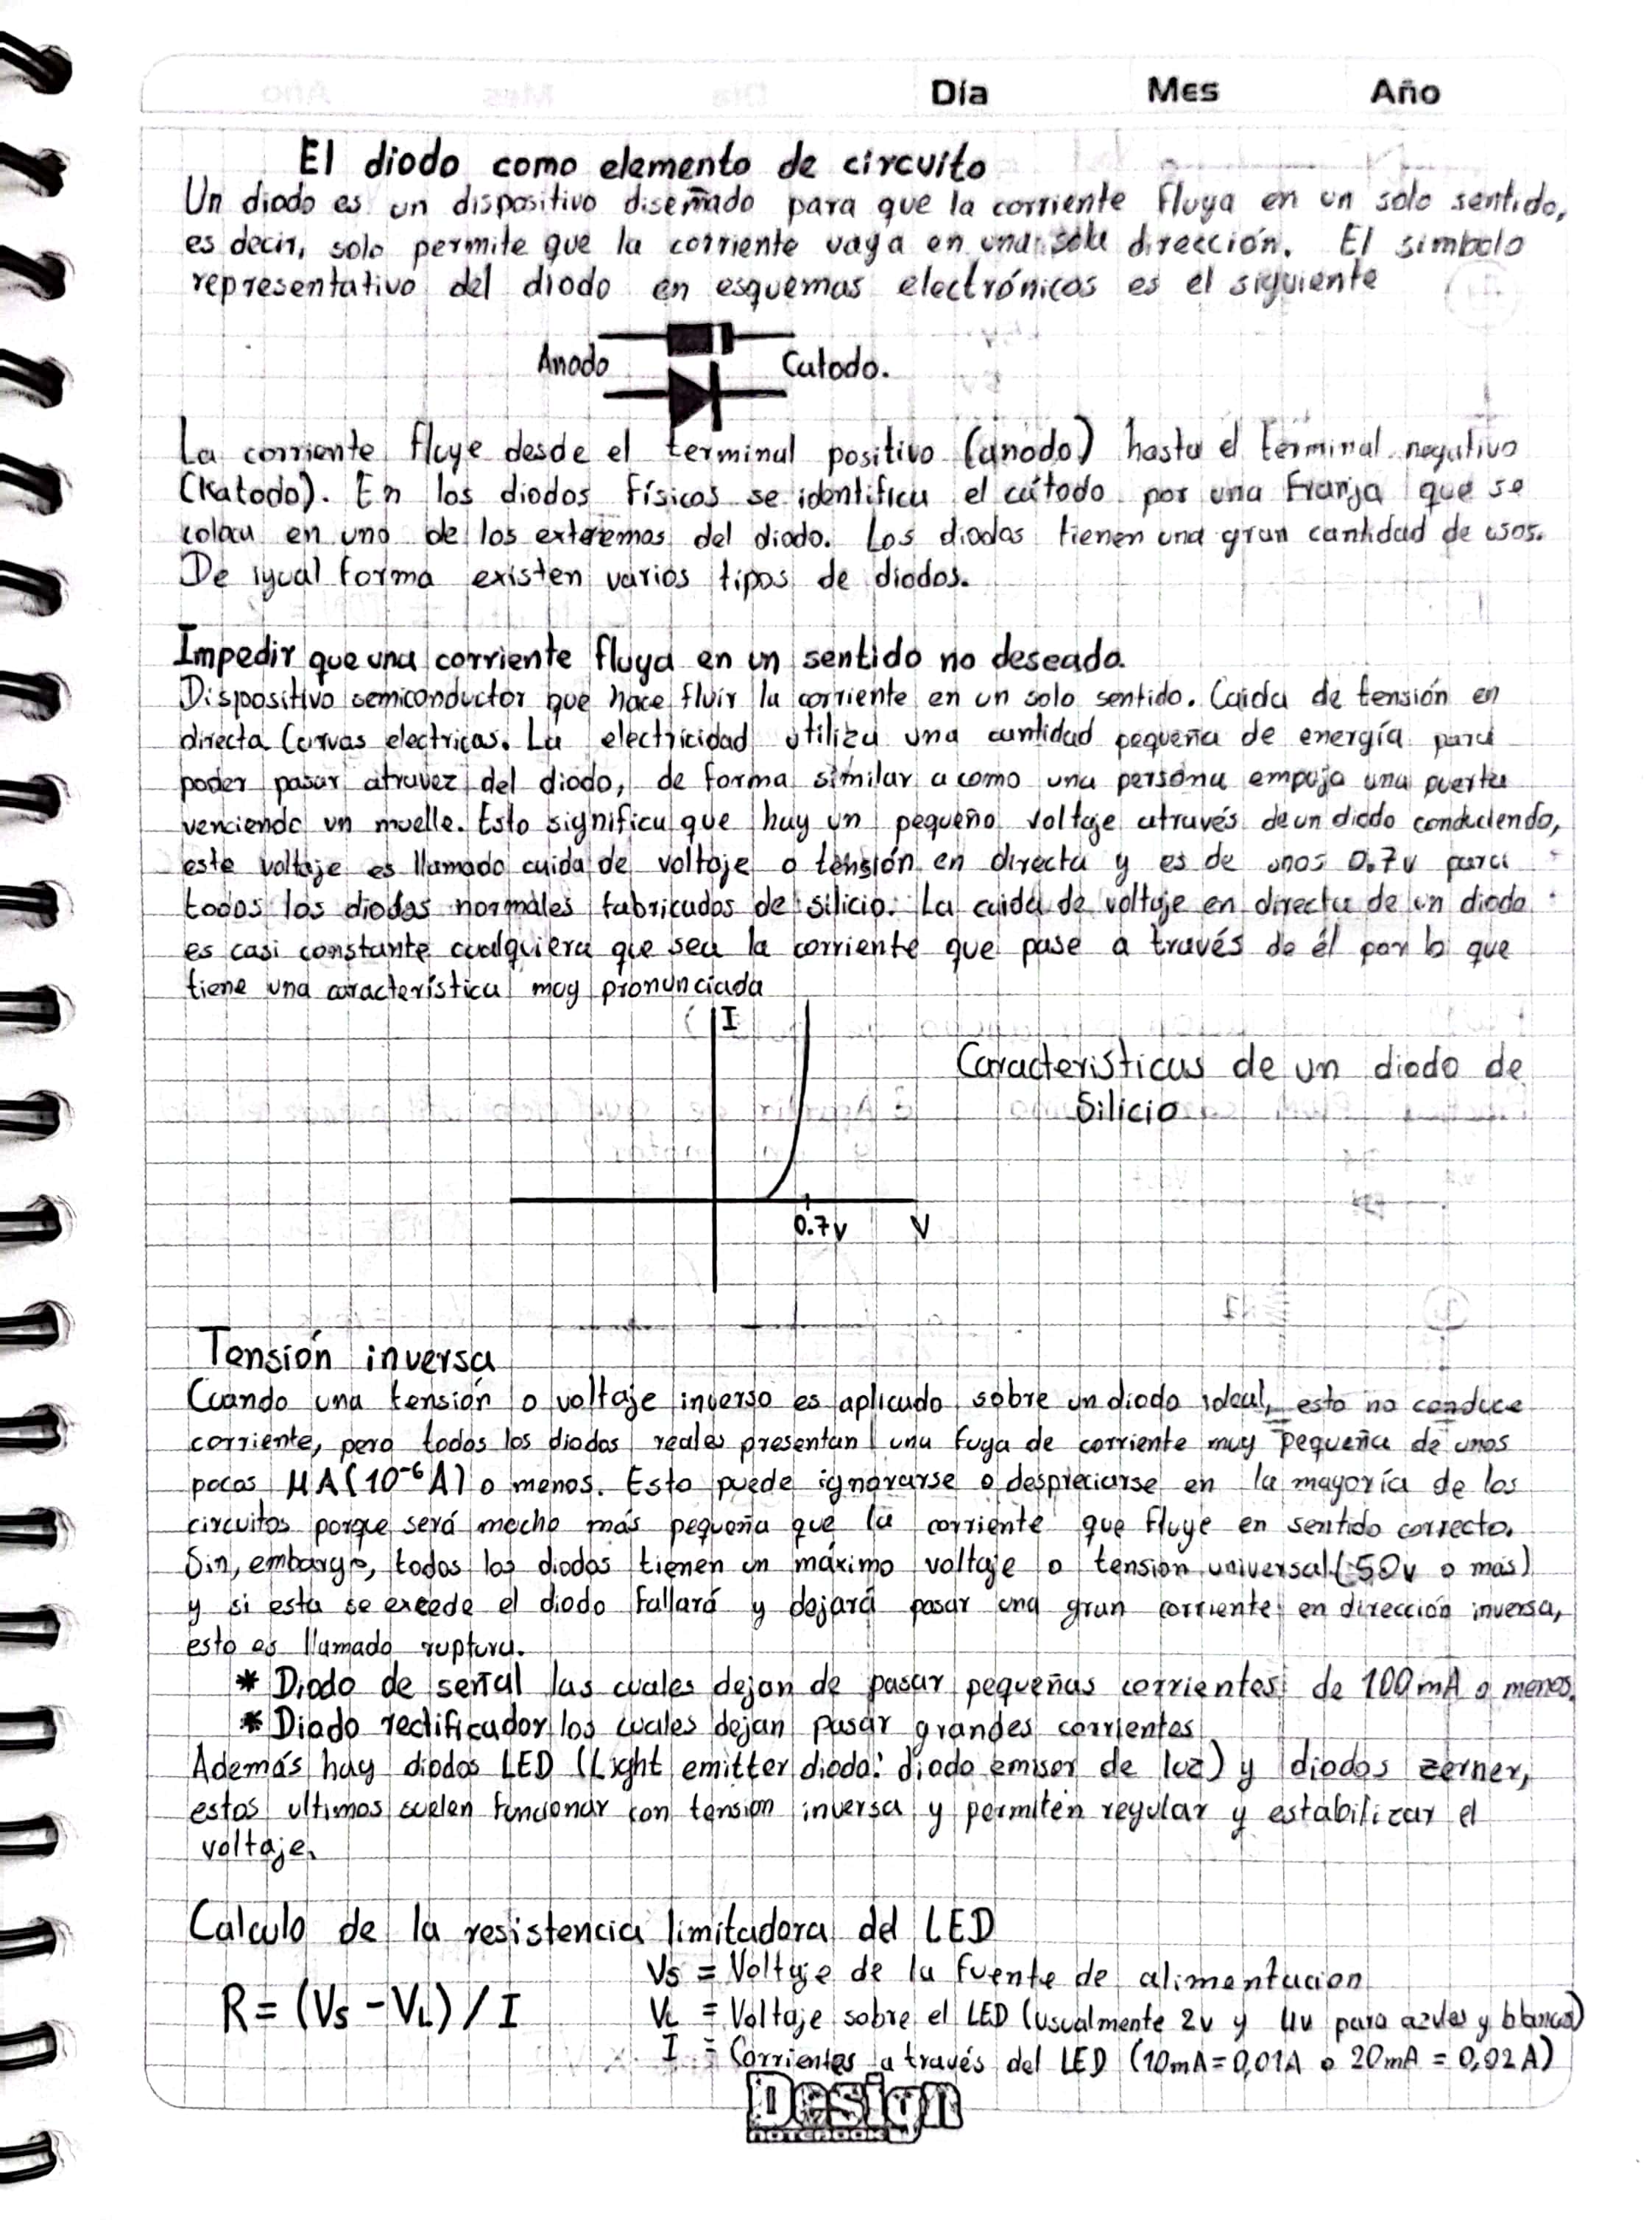 Día Mes Año
El diodo como elemento de circuito
Un diodo es un dispositivo diseñado para que la corriente fluya en un solo sentido,
es decir, solo permite que la corriente vaya en una sola dirección. El simbolo
representativo del diodo en esquemas electrónicos es el siguiente
Anodo Catodo.
La corriente fluye desde el terminal positivo (anodo) hasta el terminal negativo
(Katodo). En los diodos físicos se identifica el cátodo por una franja que se
coloca en uno de los exteremos del diodo. Los diodos tienen una gran cantidad de usos.
De igual forma existen varios tipos de diodos.
Impedir que una corriente fluya en un sentido no deseado.
Dispositivo semiconductor que hace fluir la corriente en un solo sentido. Caida de tensión en
directa. Curvas electricas. La electricidad utiliza una cantidad pequeña de energía para
poder pasar atravez del diodo, de forma similar a como una persona empuja una puerta
venciendo un muelle. Esto significa que hay un pequeño voltaje através de un diodo conduciendo,
este voltaje es llamado caida de voltaje o tensión en directa y es de unos 0.7v para
todos los diodos normales fabricados de silicio. La caida de voltaje en directa de un diodo
es casi constante cualquiera que sea la corriente que pase a través de él por lo que
tiene una característica muy pronunciada
I
Caracteristicas de un diodo de
Silicio
0.7v V
Tensión inversa
Cuando una tensión o voltaje inverso es aplicado sobre un diodo ideal, esto no conduce
corriente, pero todos los diodos reales presentan una fuga de corriente muy pequeña de unos
pocos μA (10⁻⁶A) o menos. Esto puede ignorarse o despreciarse en la mayoría de los
circuitos porque será mucho más pequeña que la corriente que fluye en sentido correcto.
Sin, embargo, todos los diodos tienen un máximo voltaje o tension universal (50v o más)
y si esta se excede el diodo fallará y dejará pasar una gran corriente en dirección inversa,
esto es llamado ruptura.
* Diodo de señal las cuales dejan de pasar pequeñas corrientes de 100mA o menos.
* Diodo rectificador los cuales dejan pasar grandes corrientes
Además hay diodos LED (Light emitter diodo: diodo emisor de luz) y diodos zerner,
estos ultimos suelen funcionar con tension inversa y permiten regular y estabilizar el
voltaje.
Calculo de la resistencia limitadora del LED
Vs = Voltaje de la fuente de alimentacion
R = (Vs - VL) / I
VL = Voltaje sobre el LED (usualmente 2v y 4v para azules y blancos)
I = Corrientes a través del LED (10mA = 0,01A o 20mA = 0,02A)
Design
NOTEBOOK